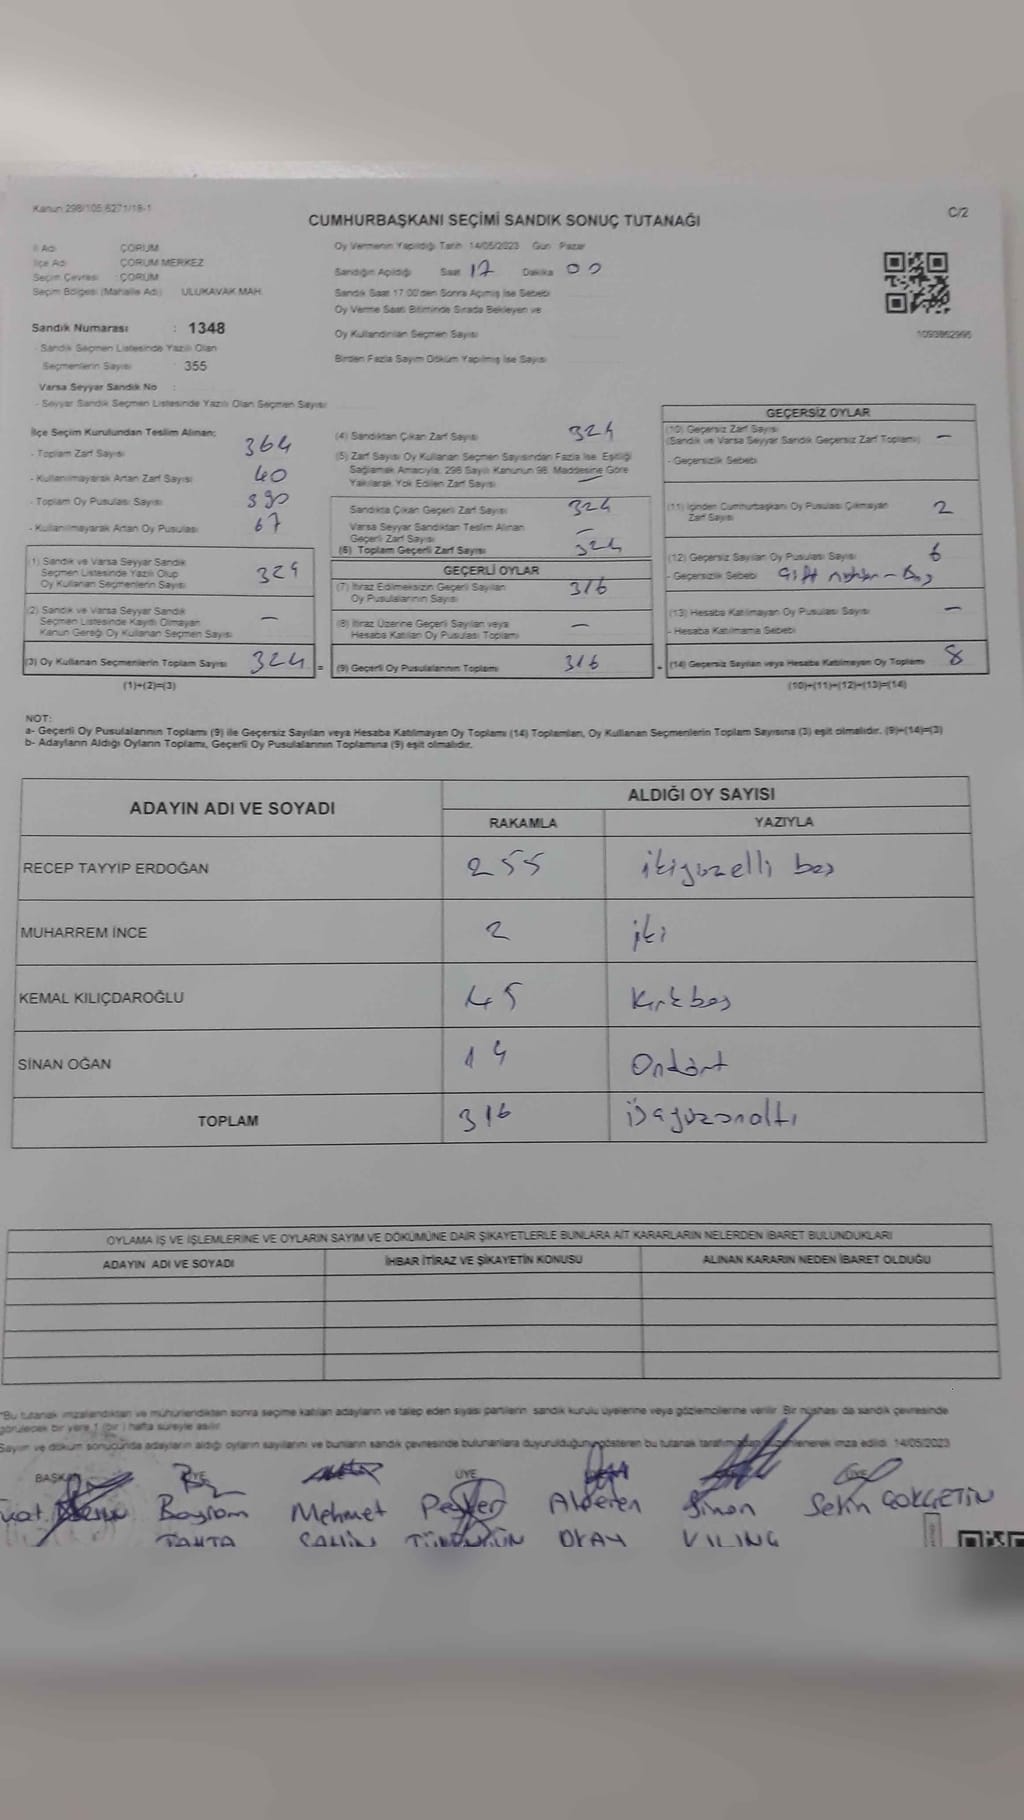 Kanun 298/105,6271/18-1
CUMHURBAŞKANI SEÇİMİ SANDIK SONUÇ TUTANAĞI
C/2
İl Adı ÇORUM
İlçe Adı ÇORUM MERKEZ
Seçim Çevresi ÇORUM
Seçim Bölgesi (Mahalle Adı) ULUKAVAK MAH.
Oy Vermenin Yapıldığı Tarih 14/05/2023 Gün Pazar
Sandığın Açıldığı Saat 17 Dakika 00
Sandık Saat 17:00'den Sonra Açılmış İse Sebebi
Oy Verme Saati Bitiminde Sırada Bekleyen ve
Oy Kullandırılan Seçmen Sayısı
Birden Fazla Sayım Döküm Yapılmış İse Sayısı
1093862995
Sandık Numarası : 1348
- Sandık Seçmen Listesinde Yazılı Olan
Seçmenlerin Sayısı : 355
Varsa Seyyar Sandık No :
- Seyyar Sandık Seçmen Listesinde Yazılı Olan Seçmen Sayısı
İlçe Seçim Kurulundan Teslim Alınan;
- Toplam Zarf Sayısı 364
- Kullanılmayarak Artan Zarf Sayısı 40
- Toplam Oy Pusulası Sayısı 390
- Kullanılmayarak Artan Oy Pusulası 67
(1) Sandık ve Varsa Seyyar Sandık
Seçmen Listesinde Yazılı Olup
Oy Kullanan Seçmenlerin Sayısı 324
(2) Sandık ve Varsa Seyyar Sandık
Seçmen Listesinde Kayıtlı Olmayan
Kanun Gereği Oy Kullanan Seçmen Sayısı —
(3) Oy Kullanan Seçmenlerin Toplam Sayısı 324 =
(1)+(2)=(3)
(4) Sandıktan Çıkan Zarf Sayısı 324
(5) Zarf Sayısı Oy Kullanan Seçmen Sayısından Fazla İse, Eşitliği
Sağlamak Amacıyla, 298 Sayılı Kanunun 98. Maddesine Göre
Yakılarak Yok Edilen Zarf Sayısı —
Sandıkta Çıkan Geçerli Zarf Sayısı 324
Varsa Seyyar Sandıktan Teslim Alınan
Geçerli Zarf Sayısı —
(6) Toplam Geçerli Zarf Sayısı 324
GEÇERLİ OYLAR
(7) İtiraz Edilmeksizin Geçerli Sayılan
Oy Pusulalarının Sayısı 316
(8) İtiraz Üzerine Geçerli Sayılan veya
Hesaba Katılan Oy Pusulası Toplamı —
(9) Geçerli Oy Pusulalarının Toplamı 316 +
GEÇERSİZ OYLAR
(10) Geçersiz Zarf Sayısı
(Sandık ve Varsa Seyyar Sandık Geçersiz Zarf Toplamı) —
- Geçersizlik Sebebi
(11) İçinden Cumhurbaşkanı Oy Pusulası Çıkmayan
Zarf Sayısı 2
(12) Geçersiz Sayılan Oy Pusulası Sayısı 6
- Geçersizlik Sebebi Çift
(13) Hesaba Katılmayan Oy Pusulası Sayısı —
- Hesaba Katılmama Sebebi
(14) Geçersiz Sayılan veya Hesaba Katılmayan Oy Toplamı 8
(10)+(11)+(12)+(13)=(14)
NOT:
a- Geçerli Oy Pusulalarının Toplamı (9) ile Geçersiz Sayılan veya Hesaba Katılmayan Oy Toplamı (14) Toplamları, Oy Kullanan Seçmenlerin Toplam Sayısına (3) eşit olmalıdır. (9)+(14)=(3)
b- Adayların Aldığı Oyların Toplamı, Geçerli Oy Pusulalarının Toplamına (9) eşit olmalıdır.
ADAYIN ADI VE SOYADI
ALDIĞI OY SAYISI
RAKAMLA YAZIYLA
RECEP TAYYİP ERDOĞAN 255 ikiyüzelli beş
MUHARREM İNCE 2 iki
KEMAL KILIÇDAROĞLU 45 Kırkbeş
SİNAN OĞAN 14 Ondört
TOPLAM 316 üçyüzonaltı
OYLAMA İŞ VE İŞLEMLERİNE VE OYLARIN SAYIM VE DÖKÜMÜNE DAİR ŞİKAYETLERLE BUNLARA AİT KARARLARIN NELERDEN İBARET BULUNDUKLARI
ADAYIN ADI VE SOYADI İHBAR İTİRAZ VE ŞİKAYETİN KONUSU ALINAN KARARIN NEDEN İBARET OLDUĞU
*Bu tutanak imzalandıktan ve mühürlendikten sonra seçime katılan adayların ve talep eden siyasi partilerin sandık kurulu üyelerine veya gözlemcilerine verilir. Bir nüshası da sandık çevresinde
görülecek bir yere 1 (bir) hafta süreyle asılır.
Sayım ve döküm sonucunda adayların aldığı oyların sayılarını ve bunların sandık çevresinde bulunanlara duyurulduğunu gösteren bu tutanak imza edildi. 14/05/2023
BAŞKAN ÜYE ÜYE ÜYE
Bayram Mehmet Alperen Sinan Setin GÖKÇETİN
TAHTA ŞAHİN OKAY KILINÇ